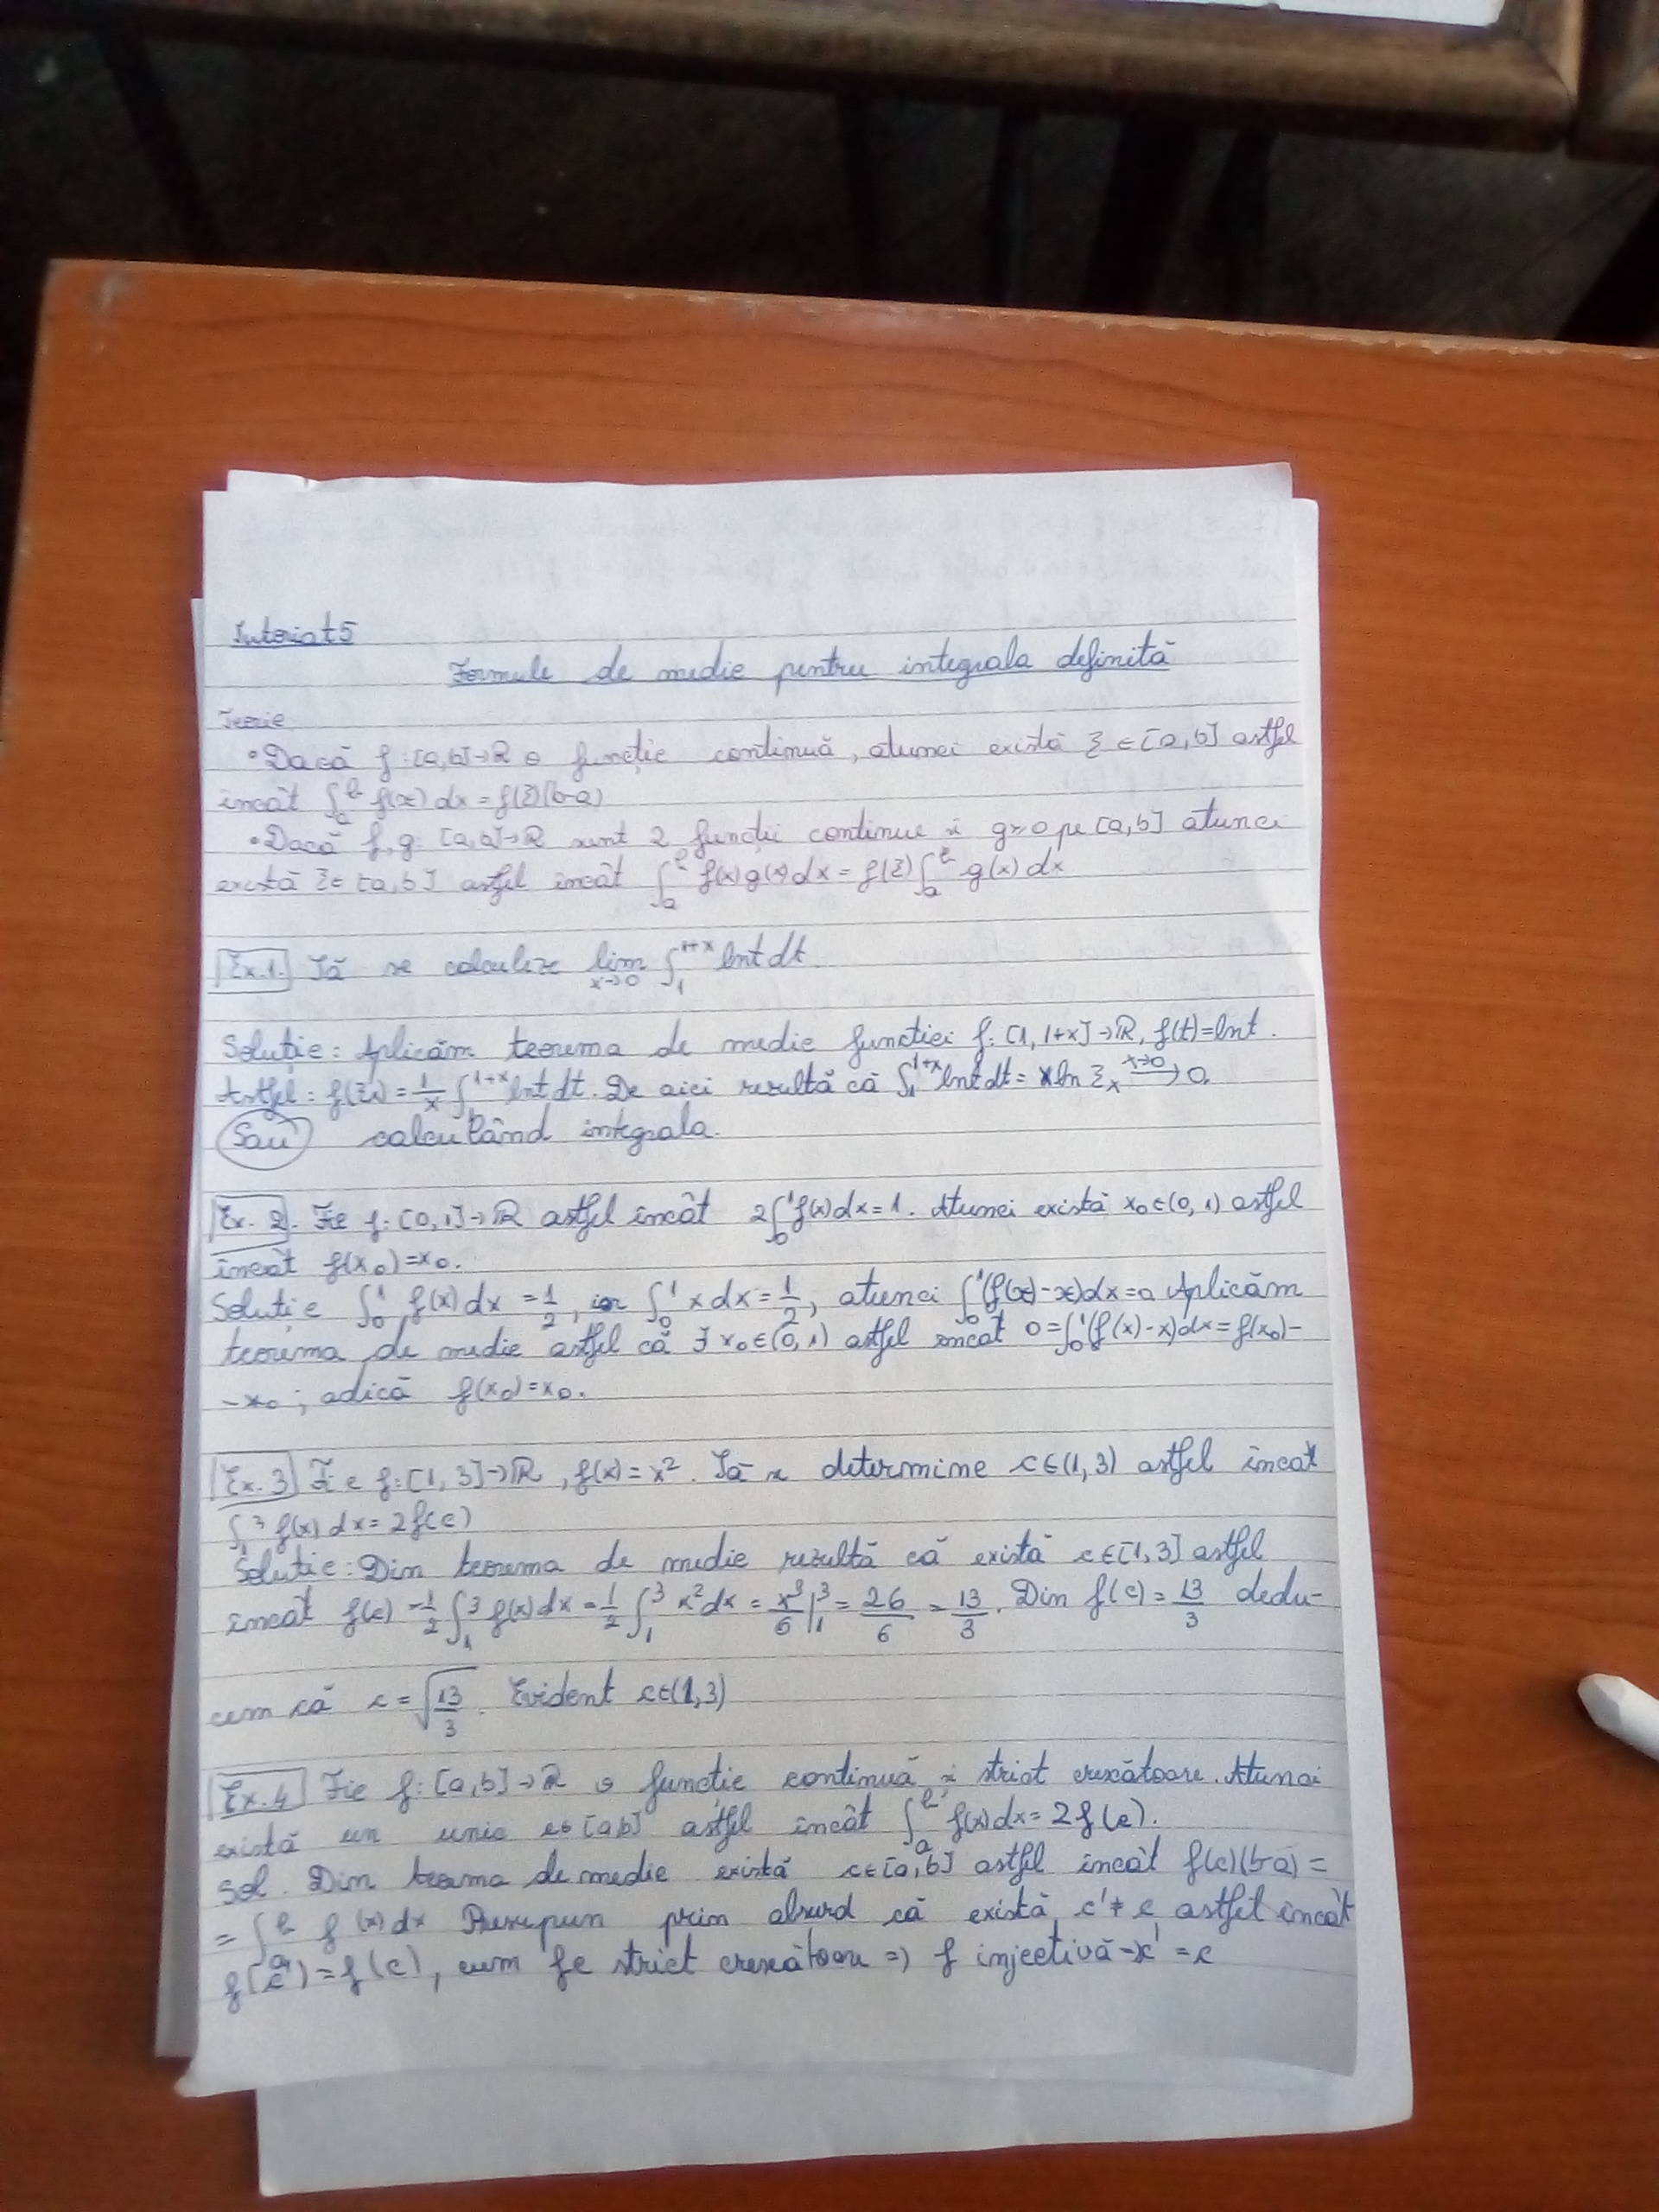 Tutoriat5
Formule de medie pentru integrala definită
Teorie
• Dacă f:[a,b]→R o funcție continuă, atunci există ξ∈[a,b] astfel
încât ∫_a^b f(x)dx=f(ξ)(b-a)
• Dacă f,g: [a,b]→R sunt 2 funcții continue și g≥0 pe [a,b] atunci
există ξ∈[a,b] astfel încât ∫_a^b f(x)g(x)dx=f(ξ)∫_a^b g(x)dx
Ex.1. Să se calculeze lim_{x→0} ∫_1^{1+x} lnt dt.
Soluție: Aplicăm teorema de medie functiei f:[1,1+x]→R, f(t)=lnt.
Astfel: f(ξ_x)=1/x ∫_1^{1+x} lnt dt. De aici rezultă că ∫_1^{1+x} lnt dt=x ln ξ_x →^{x→0} 0.
Sau calculând integrala.
Ex. 2. Fie f:[0,1]→R astfel încât 2∫_0^1 f(x)dx=1. Atunci există x_0∈(0,1) astfel
încât f(x_0)=x_0.
Soluție ∫_0^1 f(x)dx=1/2, iar ∫_0^1 x dx=1/2, atunci ∫_0^1 (f(x)-x)dx=0 Aplicăm
teorema de medie astfel că ∃ x_0∈(0,1) astfel încât 0=∫_0^1 (f(x)-x)dx=f(x_0)-
-x_0; adică f(x_0)=x_0.
Ex. 3 Fie f:[1,3]→R, f(x)=x². Să se determine c∈(1,3) astfel încat
∫_1^3 f(x)dx=2f(c)
Soluție: Din teorema de medie rezultă că există c∈[1,3] astfel
încât f(c)=1/2 ∫_1^3 f(x)dx=1/2 ∫_1^3 x²dx=x³/6 |_1^3=26/6=13/3. Din f(c)=13/3 dedu-
cem că c=√(13/3). Evident c∈(1,3)
Ex.4 Fie f:[a,b]→R o funcție continuă și strict crescătoare. Atunci
există un unic c∈[a,b] astfel încât ∫_a^b f(x)dx=2f(c).
Sol. Din teorema de medie există c∈[a,b] astfel încât f(c)(b-a)=
=∫_a^b f(x)dx Presupun prin absurd că există c'≠c astfel încât
f(c')=f(c), cum f e strict crescătoare ⇒ f injectivă→c'=c